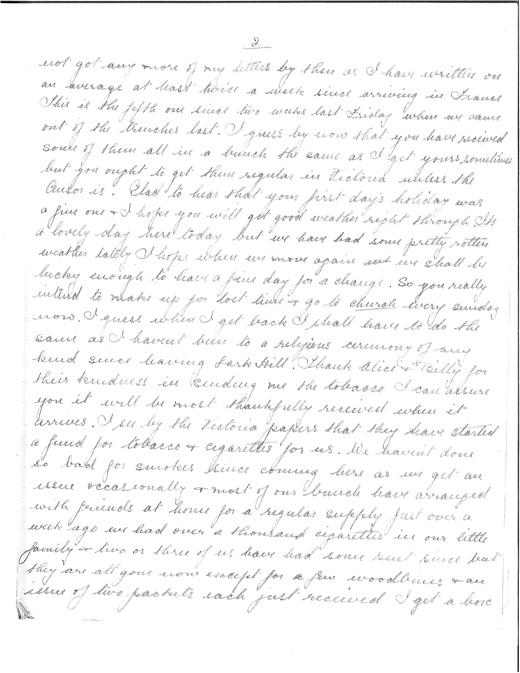 2
not got any more of my letters by then as I have written on
an average at least twice a week since arriving in France
This is the fifth one since two weeks last Friday when we came
out of the trenches last. I guess by now that you have recieved
some of them all in a bunch the same as I get yours sometimes
but you ought to get them regular in Victoria unless the
is. Glad to hear that your first day's holiday was
a fine one & I hope you will get good weather right through. Its
a lovely day here today but we have had some pretty rotten
weather lately I hope when we move again we shall be
lucky enough to have a fine day for a change. So you really
intend to make up for lost time & go to church every sunday
now. I guess when I get back I shall have to do the
same as I havent been to a religious ceremony of any
kind since leaving Lark Hill. Thank Alice & Billy for
their kindness in sending me the tobacco I can assure
you it will be most thankfully received when it
arrives. I see by the Victoria papers that they have started
a fund for tobacco & cigarettes for us. We havent done
so bad for smokes since coming here as we get an
issue occasionally & most of our bunch have arranged
with friends at home for a regular supply Just over a
week ago we had over a thousand cigarettes in our little
family & two or three of us have had some sent since but
they are all gone now except for a few woodbines & an
issue of two packets each just received I get a box